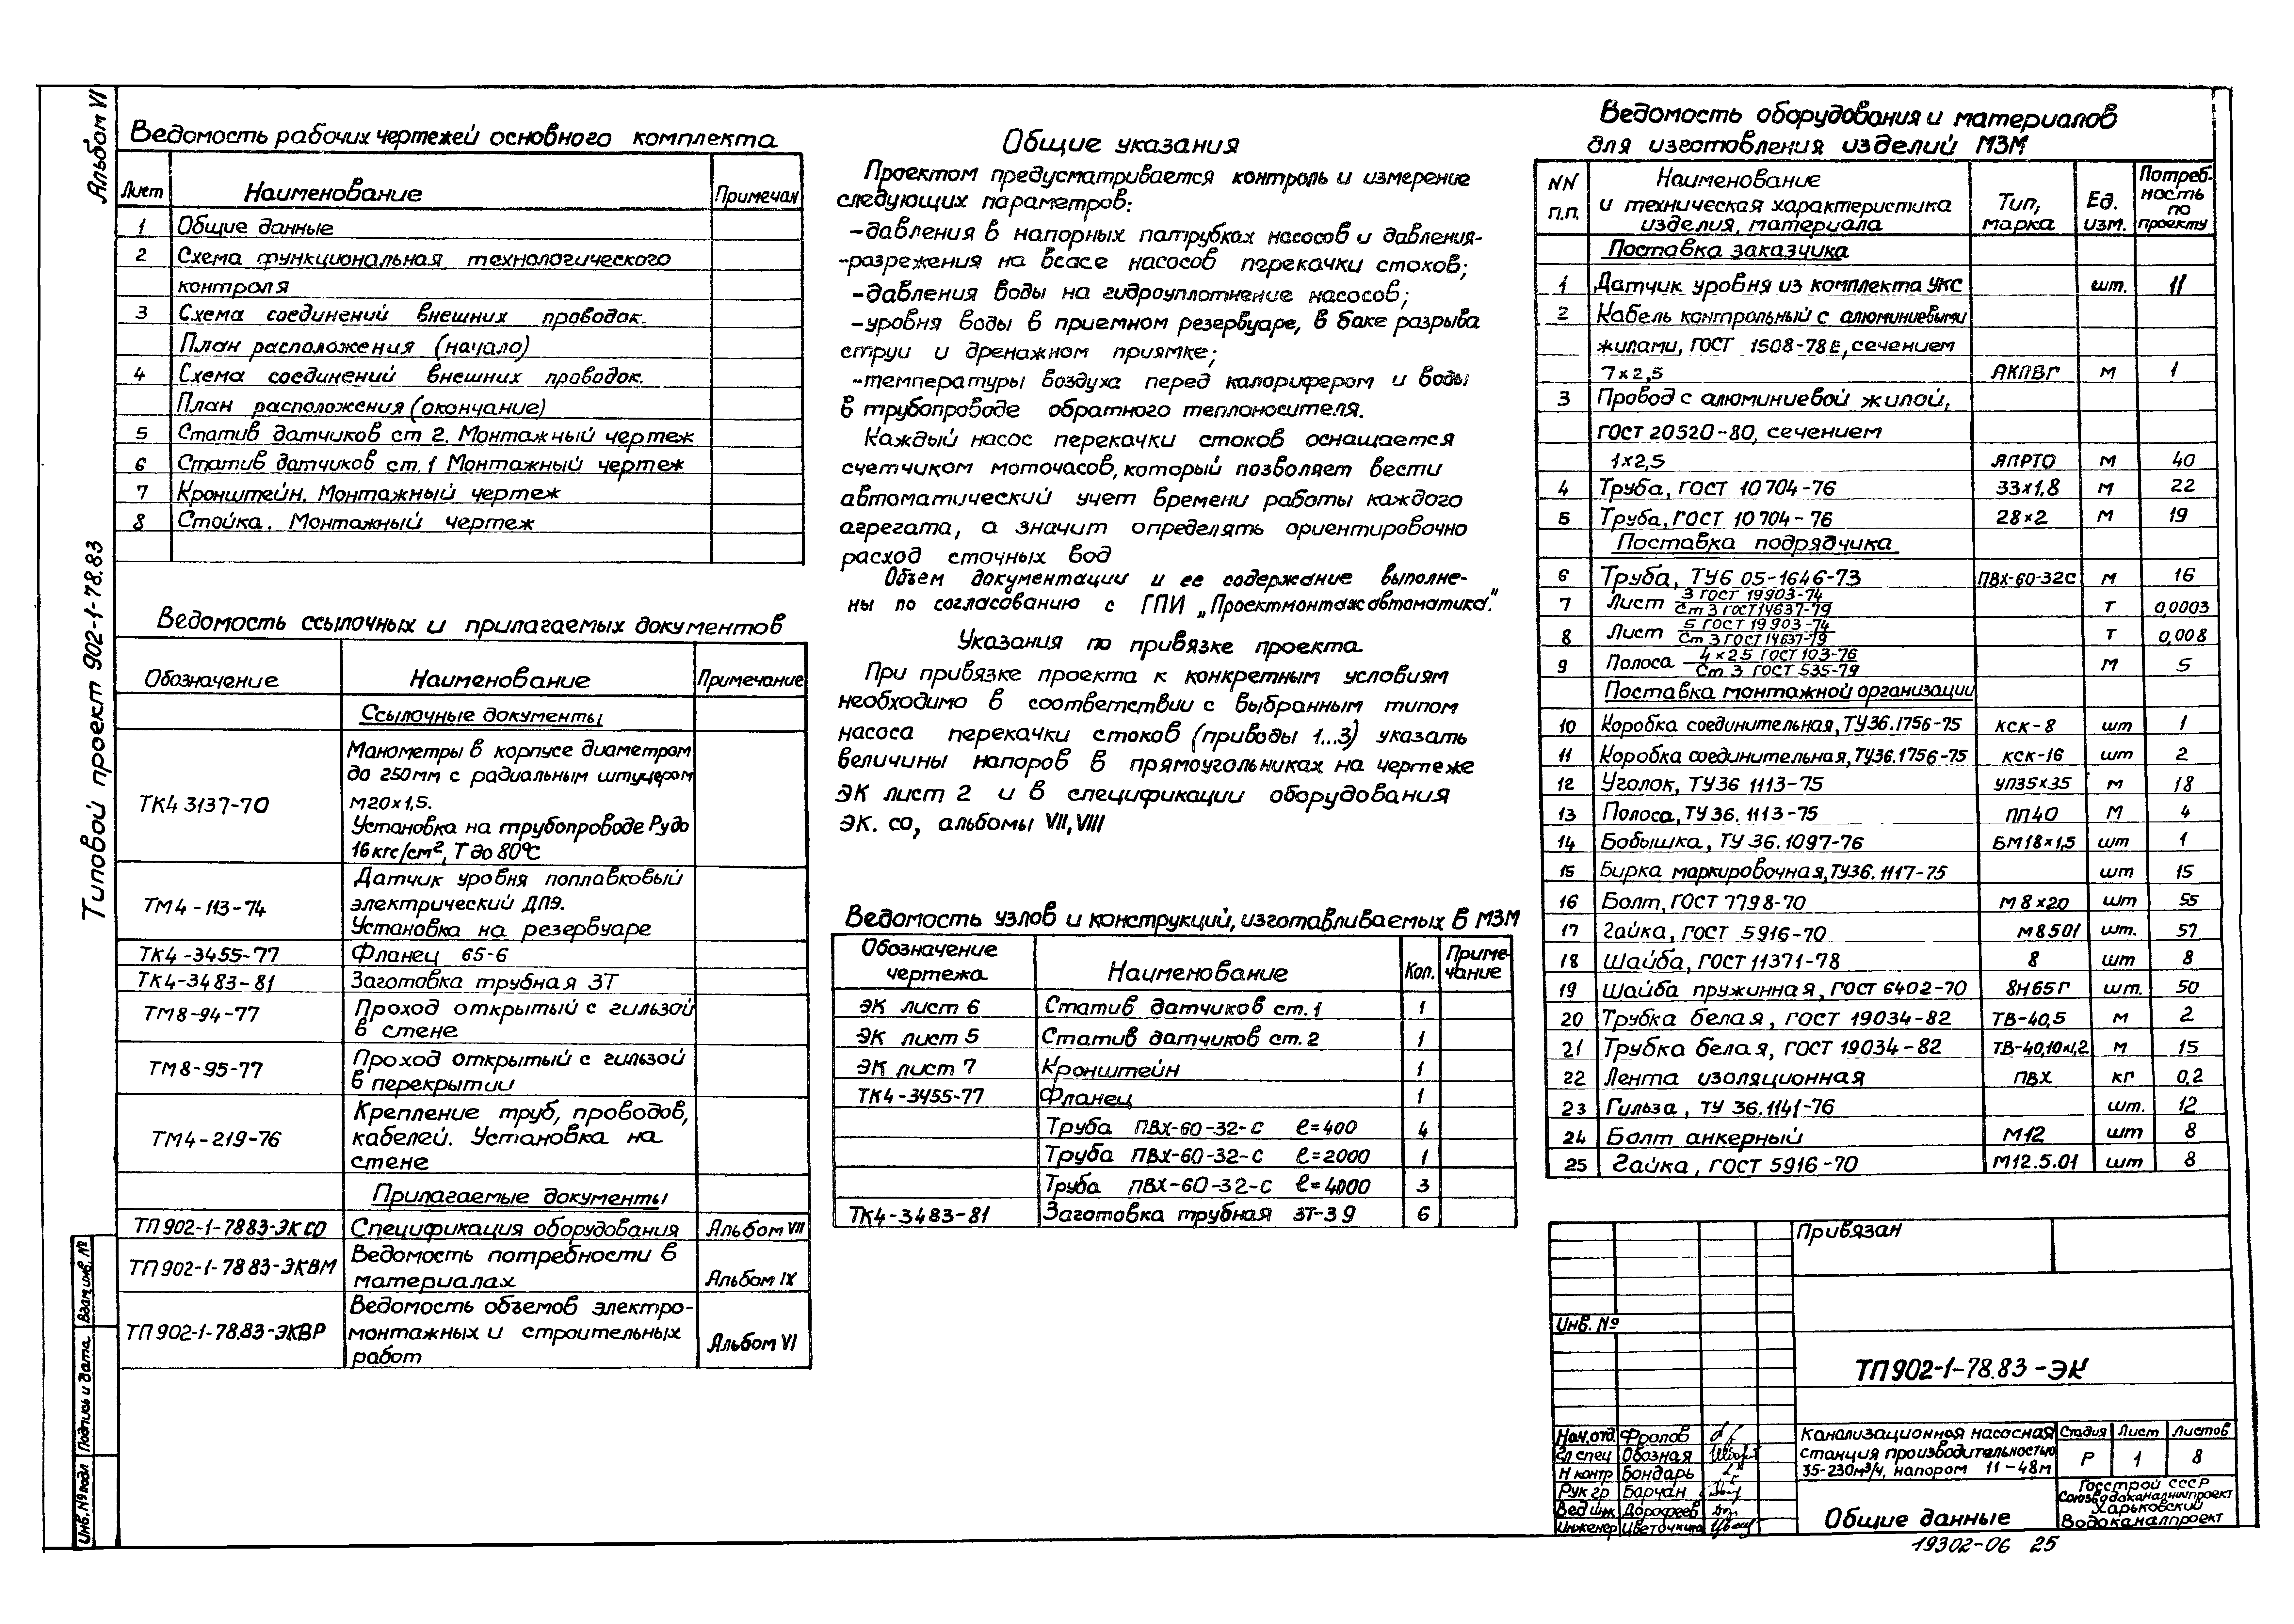 Альбом VI
Типовой проект 902-1-78.83
Взам.инв. №
Подпись и дата
Инв.№ подл
Ведомость рабочих чертежей основного комплекта
Лист Наименование Примечан
1 Общие данные
2 Схема функциональная технологического
контроля
3 Схема соединений внешних проводок.
План расположения (начало)
4 Схема соединений внешних проводок.
План расположения (окончание)
5 Статив датчиков ст 2. Монтажный чертеж
6 Статив датчиков ст.1 Монтажный чертеж
7 Кронштейн. Монтажный чертеж
8 Стойка. Монтажный чертеж
Ведомость ссылочных и прилагаемых документов
Обозначение Наименование Примечание
Ссылочные документы
Манометры в корпусе диаметром
до 250мм с радиальным штуцером
ТК4 3137-70 М20х1,5.
Установка на трубопроводе Ру до
16кгс/см², Т до 80°С
Датчик уровня поплавковый
ТМ4-113-74 электрический ДПЭ.
Установка на резервуаре
ТК4-3455-77 Фланец 65-6
ТК4-3483-81 Заготовка трубная ЗТ
ТМ8-94-77 Проход открытый с гильзой
в стене
ТМ8-95-77 Проход открытый с гильзой
в перекрытии
Крепление труб, проводов,
ТМ4-219-76 кабелей. Установка на
стене
Прилагаемые документы
ТП902-1-7883-ЭКСО Спецификация оборудования Альбом VII
ТП902-1-7883-ЭКВМ Ведомость потребности в
материалах Альбом IX
Ведомость объемов электро-
ТП902-1-78.83-ЭКВР монтажных и строительных Альбом VI
работ
Общие указания
Проектом предусматривается контроль и измерение
следующих параметров:
-давления в напорных патрубках насосов и давления-
-разрежения на всасе насосов перекачки стоков;
-давления воды на гидроуплотнение насосов;
-уровня воды в приемном резервуаре, в баке разрыва
струи и дренажном приямке;
-температуры воздуха перед калорифером и воды
в трубопроводе обратного теплоносителя.
Каждый насос перекачки стоков оснащается
счетчиком моточасов, который позволяет вести
автоматический учет времени работы каждого
агрегата, а значит определять ориентировочно
расход сточных вод
Объем документации и ее содержание выполне-
ны по согласованию с ГПИ „Проектмонтажавтоматика."
Указания по привязке проекта
При привязке проекта к конкретным условиям
необходимо в соответствии с выбранным типом
насоса перекачки стоков (приводы 1...3) указать
величины напоров в прямоугольниках на чертеже
ЭК лист 2 и в спецификации оборудования
ЭК. СО, альбомы VII, VIII
Ведомость узлов и конструкций, изготавливаемых в МЗМ
Обозначение чертежа Наименование Кол. Приме-чание
ЭК лист 6 Статив датчиков ст.1 1
ЭК лист 5 Статив датчиков ст.2 1
ЭК лист 7 Кронштейн 1
ТК4-3455-77 Фланец 1
Труба ПВХ-60-32-С ℓ=400 4
Труба ПВХ-60-32-С ℓ=2000 1
Труба ПВХ-60-32-С ℓ=4000 3
ТК4-3483-81 Заготовка трубная ЗТ-39 6
Ведомость оборудования и материалов
для изготовления изделий МЗМ
NN п.п. Наименование и техническая характеристика изделия, материала Тип, марка Ед. изм. Потреб-ность по проекту
Поставка заказчика
1 Датчик уровня из комплекта УКС шт. 11
2 Кабель контрольный с алюминиевыми
жилами, ГОСТ 1508-78Е, сечением
7х2,5 АКПВГ м 1
3 Провод с алюминиевой жилой,
ГОСТ 20520-80, сечением
1х2,5 АПРТО м 40
4 Труба, ГОСТ 10704-76 33х1,8 м 22
5 Труба, ГОСТ 10704-76 28х2 м 19
Поставка подрядчика
6 Труба, ТУ6 05-1646-73 ПВХ-60-32С м 16
7 Лист 3 ГОСТ 19903-74 / Ст 3 ГОСТ 14637-79 т 0,0003
8 Лист 5 ГОСТ 19903-74 / Ст 3 ГОСТ 14637-79 т 0,008
9 Полоса 4х25 ГОСТ 103-76 / Ст 3 ГОСТ 535-79 м 5
Поставка монтажной организации
10 Коробка соединительная, ТУ36.1756-75 КСК-8 шт 1
11 Коробка соединительная, ТУ36.1756-75 КСК-16 шт 2
12 Уголок, ТУ36 1113-75 УП35х35 м 18
13 Полоса, ТУ36. 1113-75 ПП40 м 4
14 Бобышка, ТУ 36.1097-76 БМ18х1,5 шт 1
15 Бирка маркировочная, ТУ36.1117-75 шт 15
16 Болт, ГОСТ 7798-70 М8х20 шт 55
17 Гайка, ГОСТ 5916-70 М8501 шт. 57
18 Шайба, ГОСТ 11371-78 8 шт 8
19 Шайба пружинная, ГОСТ 6402-70 8Н65Г шт. 50
20 Трубка белая, ГОСТ 19034-82 ТВ-40,5 м 2
21 Трубка белая, ГОСТ 19034-82 ТВ-40,10х1,2 м 15
22 Лента изоляционная ПВХ кг 0,2
23 Гильза, ТУ 36.1141-76 шт. 12
24 Болт анкерный М12 шт 8
25 Гайка, ГОСТ 5916-70 М12.5.01 шт 8
Привязан
Инв. №
ТП902-1-78.83-ЭК
Нач.отд. Фролов
Гл спец Обозная
Н контр Бондарь
Рук гр Барчан
Вед инж Дорофеев
Инженер Цветочкина
Канализационная насосная
станция производительностью
35-230м³/ч, напором 11-48м
Стадия Лист Листов
Р 1 8
Общие данные
Госстрой СССР
Союзводоканалниипроект
Харьковский
Водоканалпроект
19302-06 25